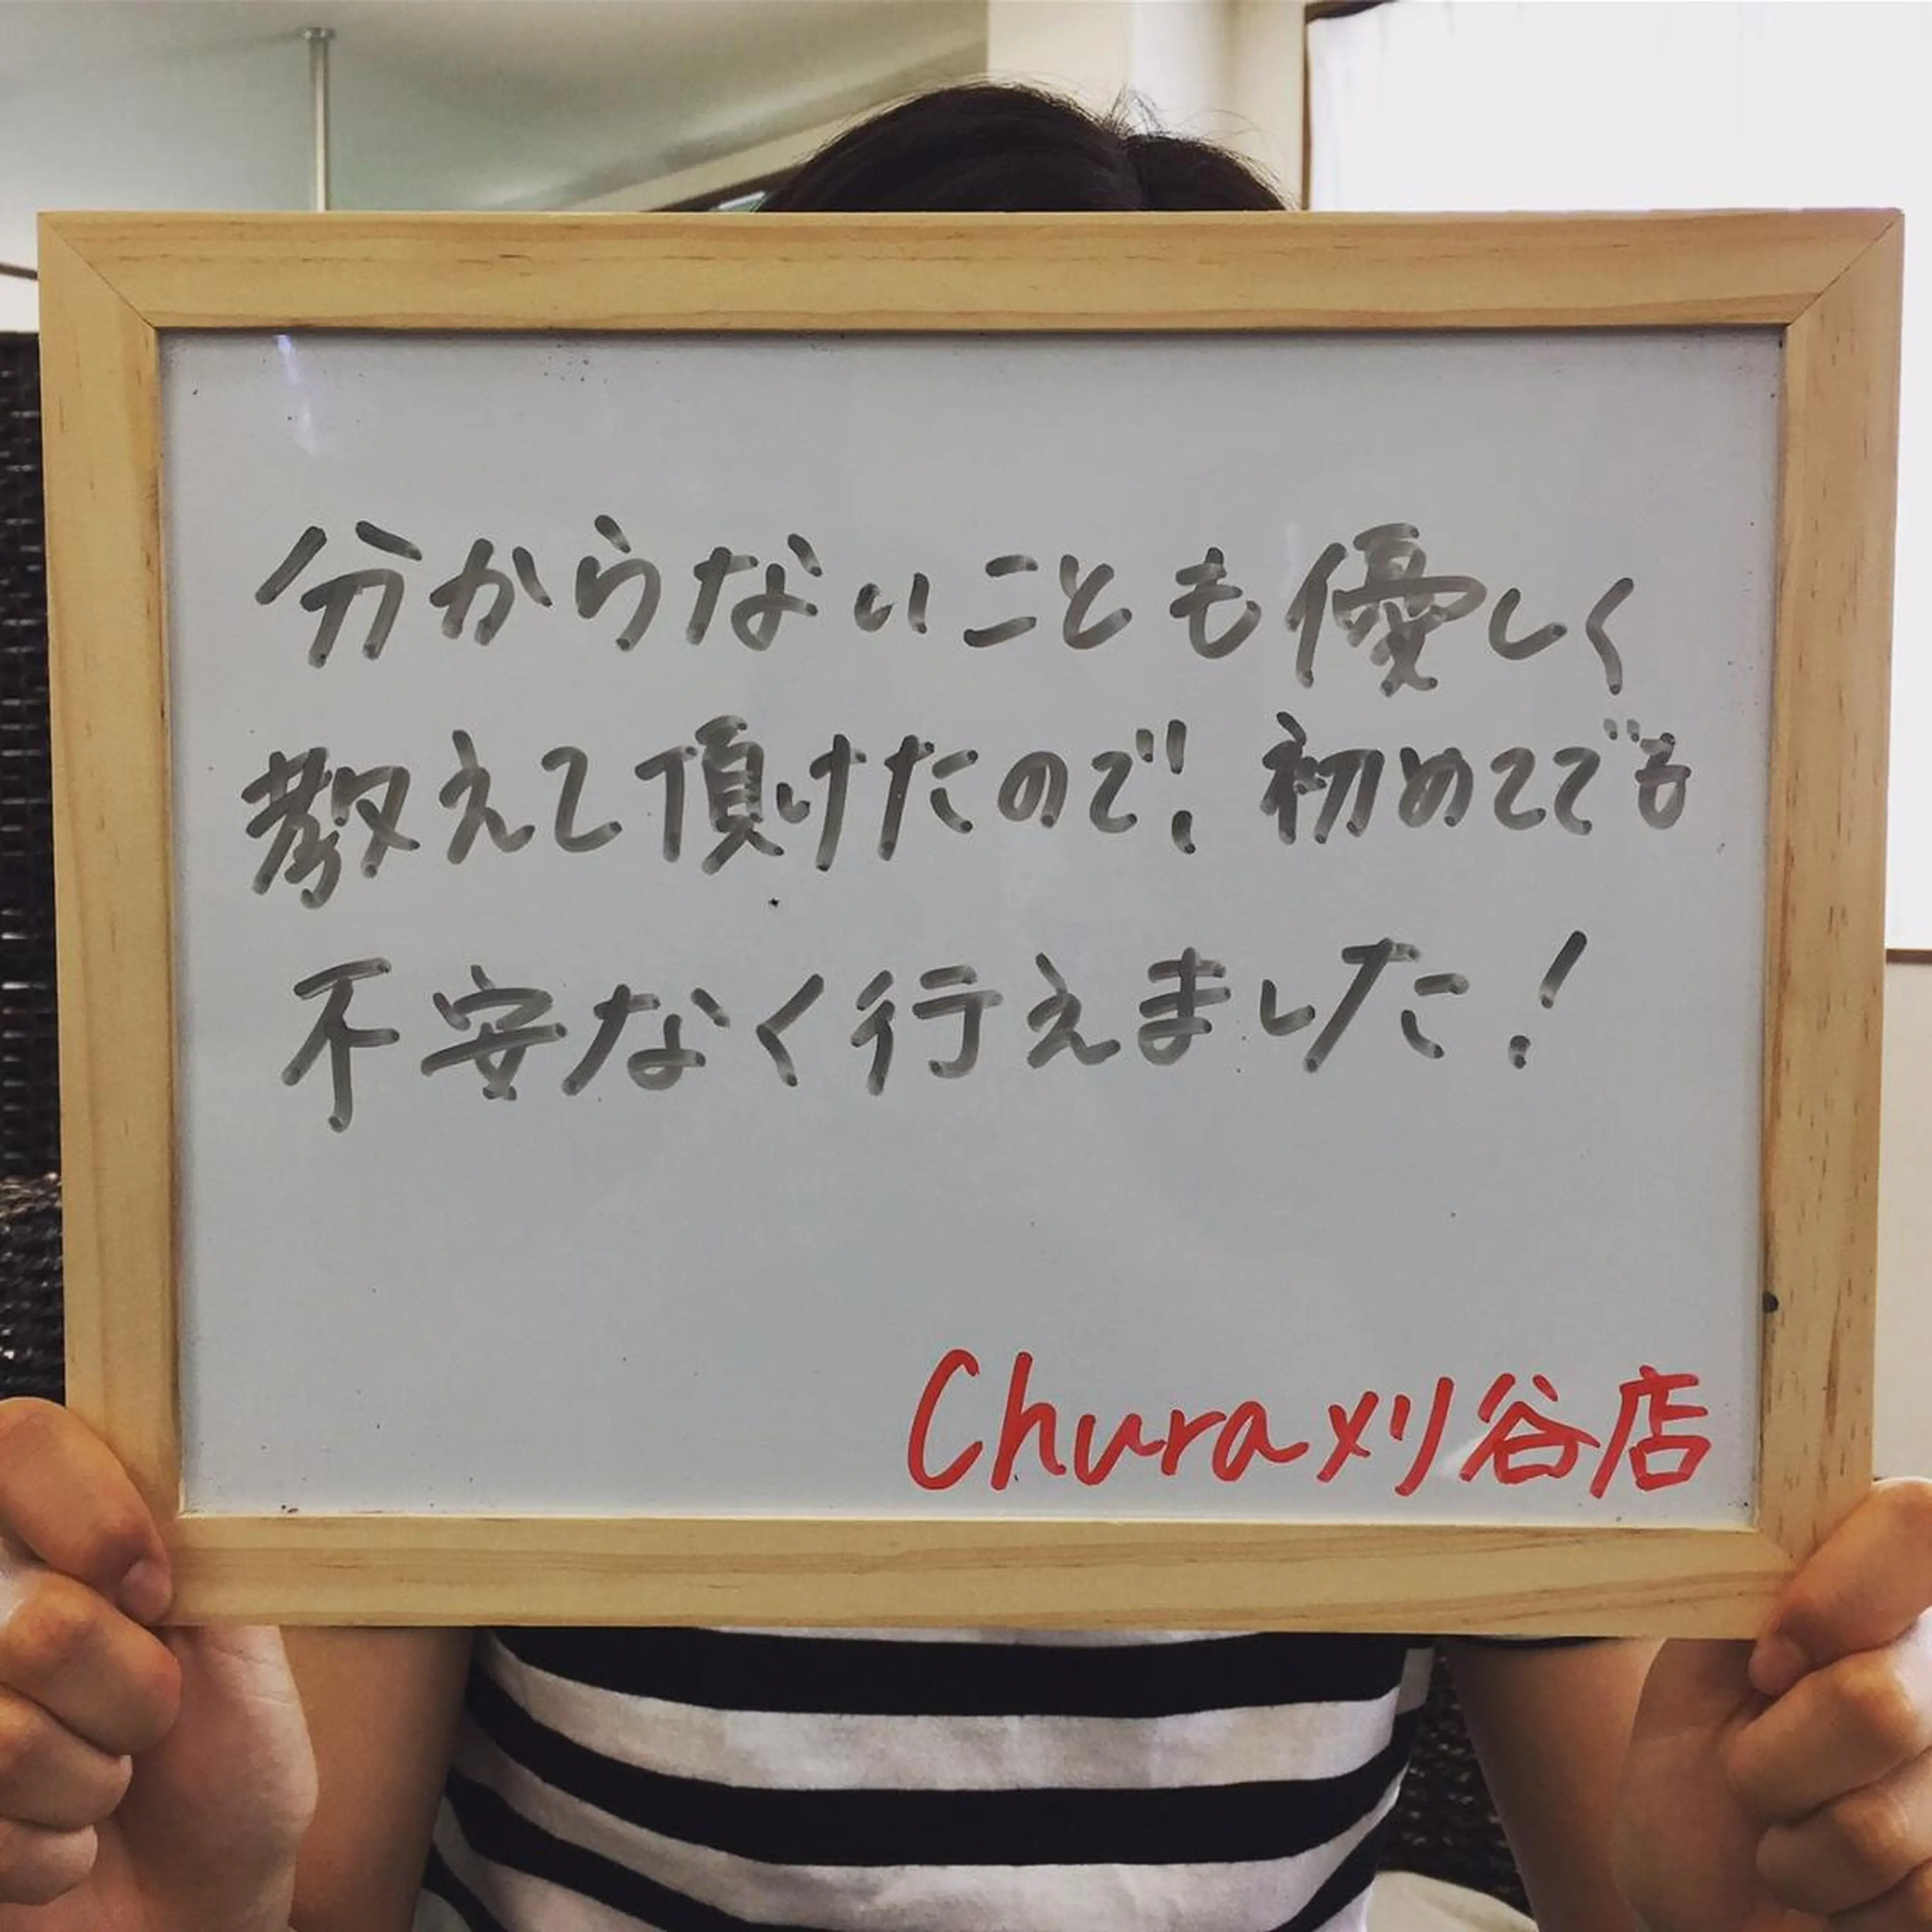 分からないことも優しく
教えて頂けたので! 初めてでも
不安なく行えました!
Chura刈谷店